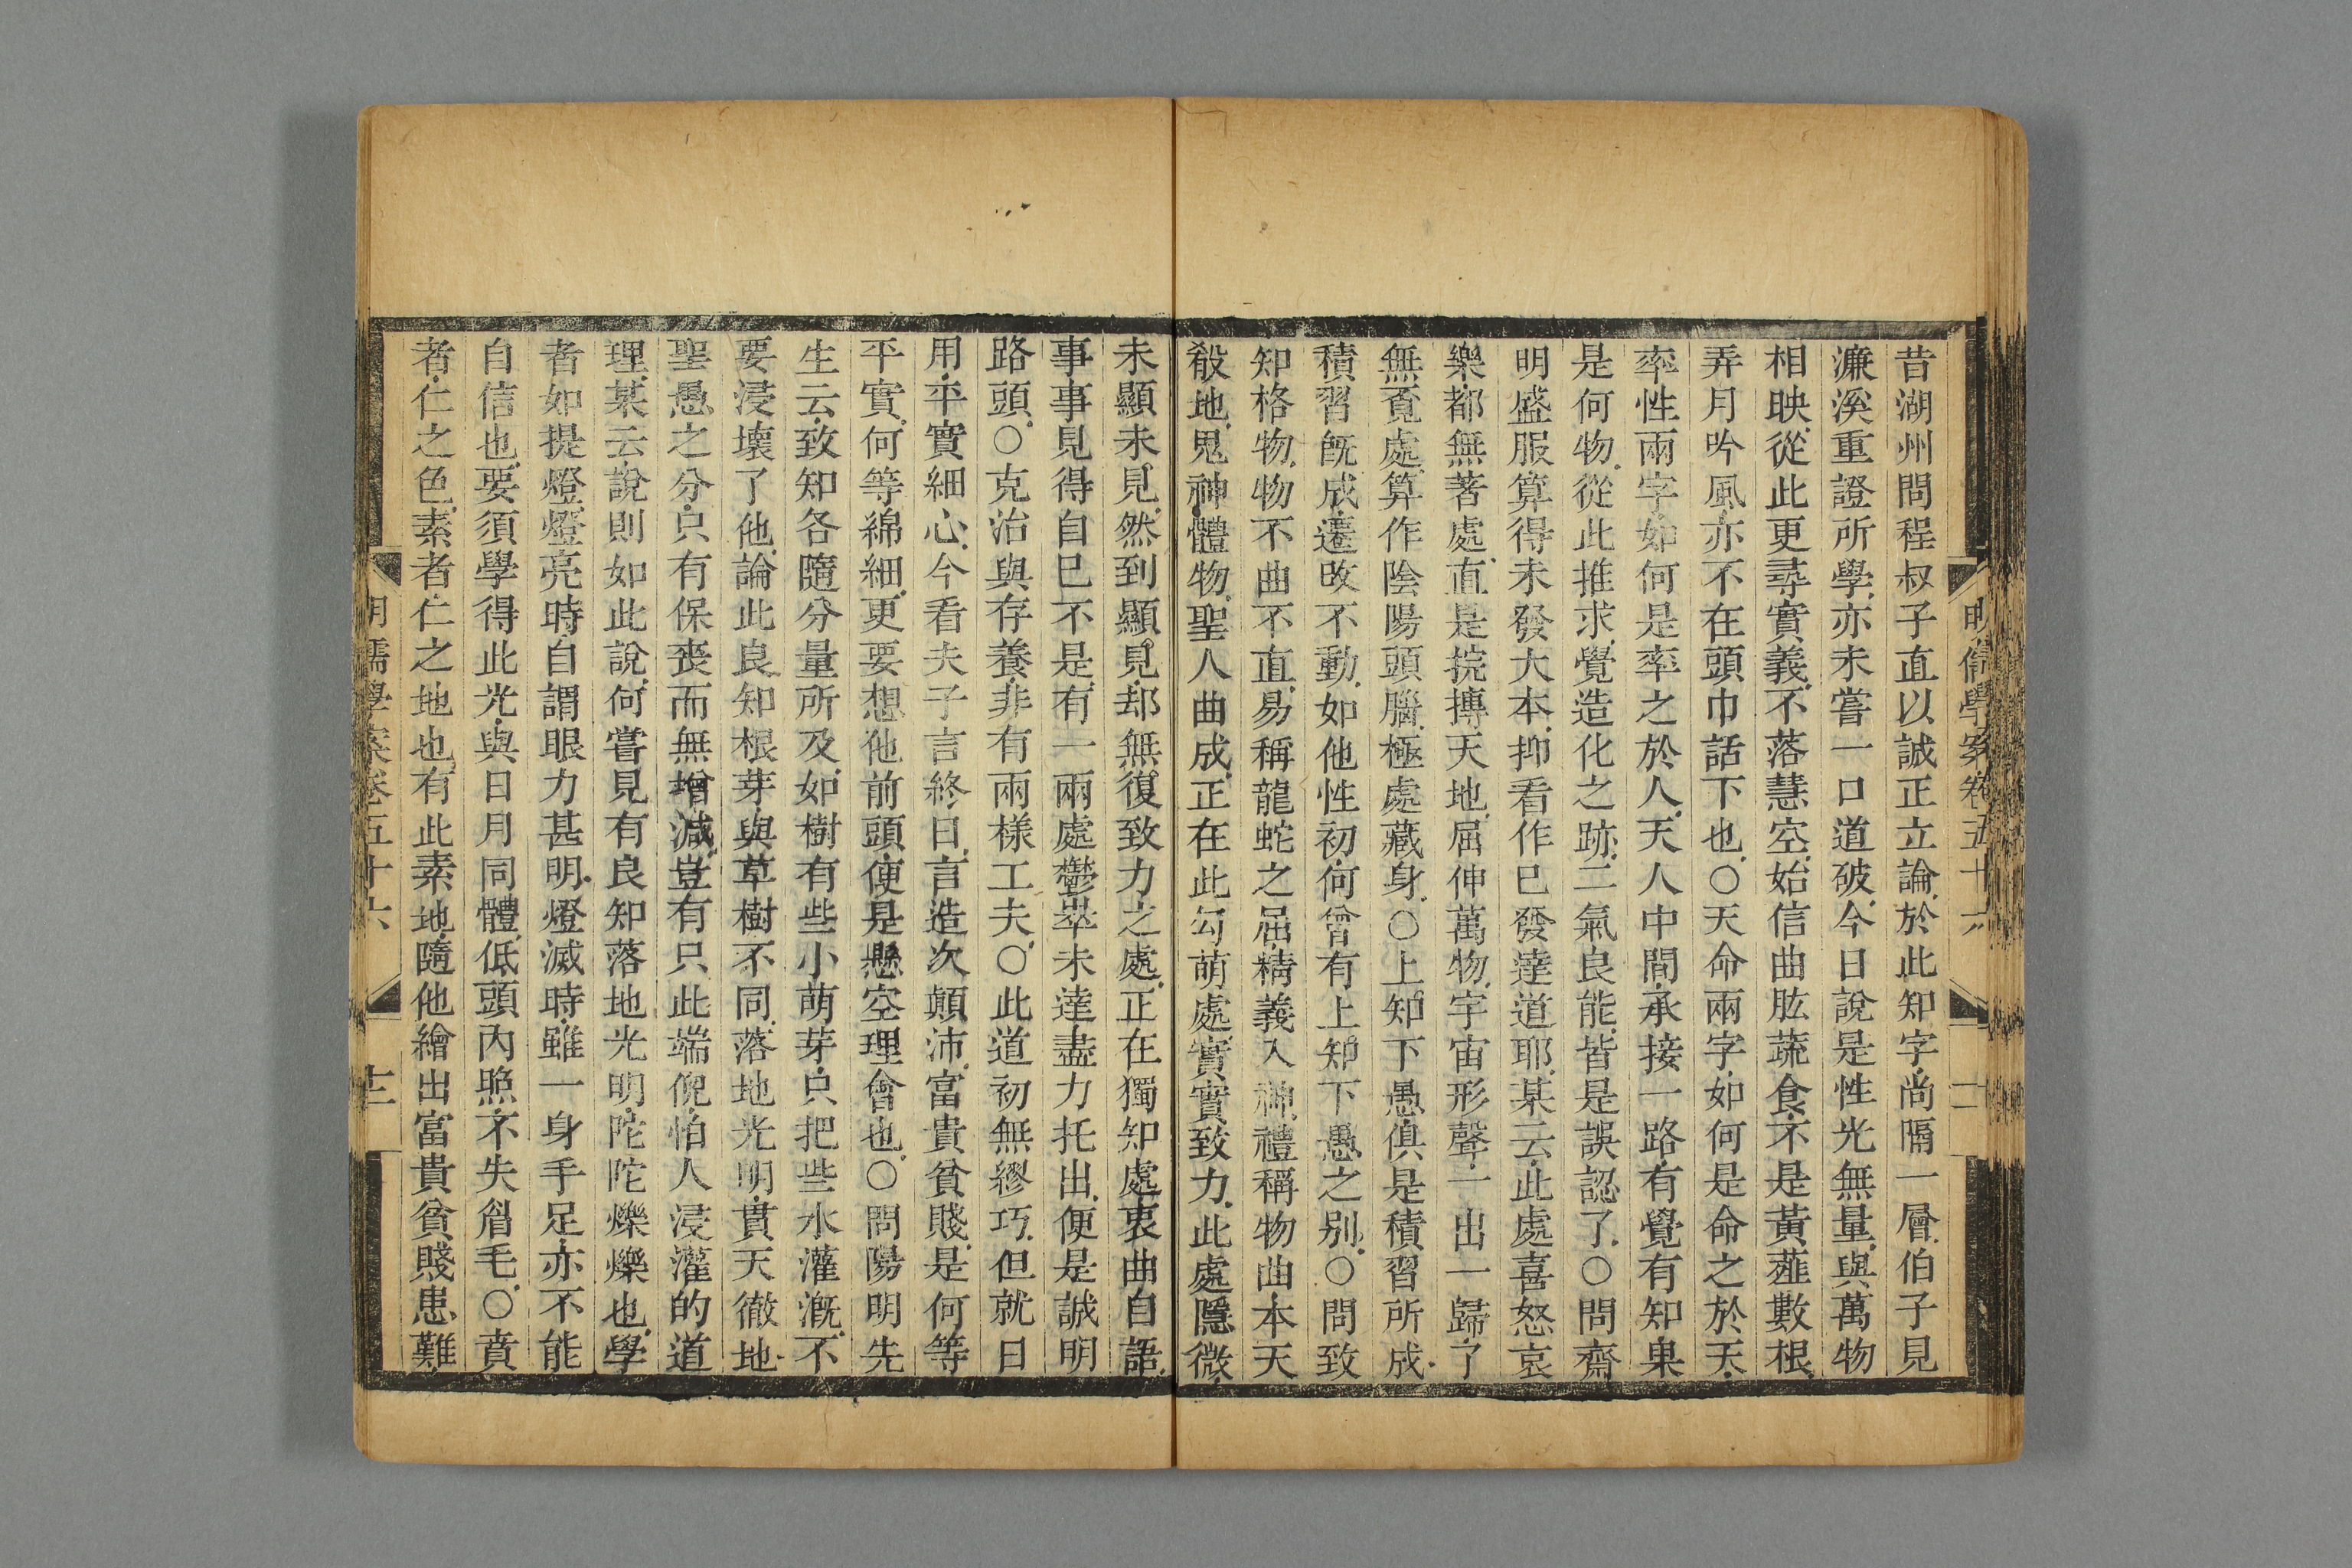 明儒學案卷五十六
二
昔湖州問程叔子直以誠正立論於此知字尚隔一層伯子見
濂溪重證所學亦未嘗一口道破今日說是性光無量與萬物
相映從此更尋實義不落慧空始信曲肱蔬食不是黃虀數根
弄月吟風亦不在頭巾話下也○天命兩字如何是命之於天
率性兩字如何是率之於人天人中間承接一路有覺有知果
是何物從此推求覺造化之跡二氣良能皆是誤認了○問齋
明盛服算得未發大本抑看作已發達道耶某云此處喜怒哀
樂都無著處直是捖摶天地屈伸萬物宇宙形聲一出一歸了
無覔處算作陰陽頭腦極處藏身○上知下愚俱是積習所成
積習旣成遷改不動如他性初何曾有上知下愚之別○問致
知格物物不曲不直易稱龍蛇之屈精義入神禮稱物曲本天
殽地鬼神體物聖人曲成正在此勾萌處實實致力此處隱微
未顯未見然到顯見却無復致力之處正在獨知處衷曲自語
事事見得自己不是有一兩處鬱崒未達盡力托出便是誠明
路頭○克治與存養非有兩樣工夫○此道初無繆巧但就日
用平實細心今看夫子言終日言造次顛沛富貴貧賤是何等
平實何等綿細更要想他前頭便是懸空理會也○問陽明先
生云致知各隨分量所及如樹有些小萌芽只把些水灌漑不
要浸壞了他論此良知根芽與草樹不同落地光明貫天徹地
聖愚之分只有保喪而無增減豈有只此端倪怕人浸灌的道
理某云說則如此說何嘗見有良知落地光明陀陀爍爍也學
者如提燈燈亮時自謂眼力甚明燈滅時雖一身手足亦不能
自信也要須學得此光與日月同體低頭內照不失眉毛○賁
者仁之色素者仁之地也有此素地隨他繪出富貴貧賤患難
明儒學案卷五十六